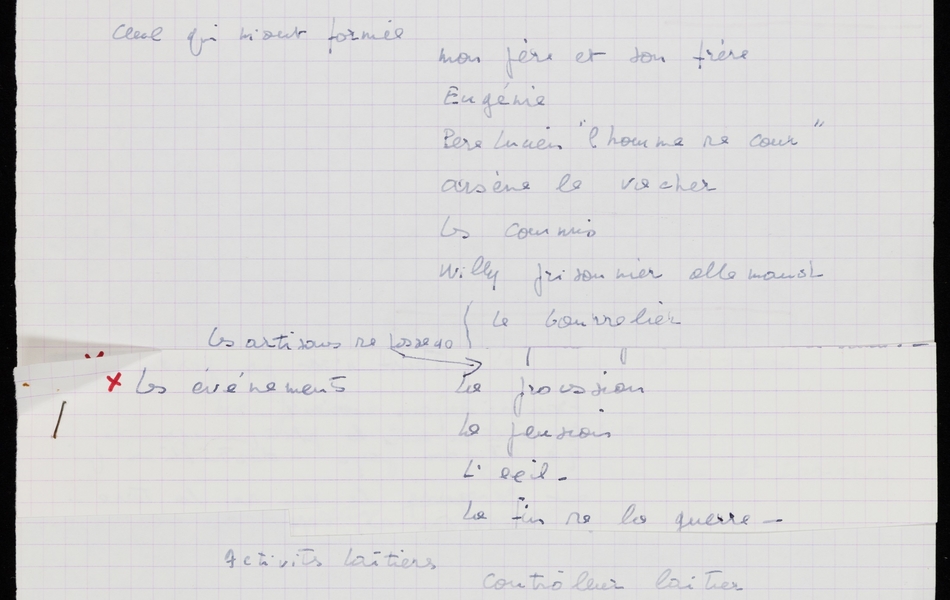 Ceux qui m'ont formée
mon père et son frère
Eugénie
Père Lucien "l'homme de cour"
arsène le vacher
Les commis
Willy prisonnier allemand
Le bourrelier
Les artisans de
X Les événements
La procession
La pension
L'exil -
La fin de la guerre -
Activités laitiers
Contrôleur laitier